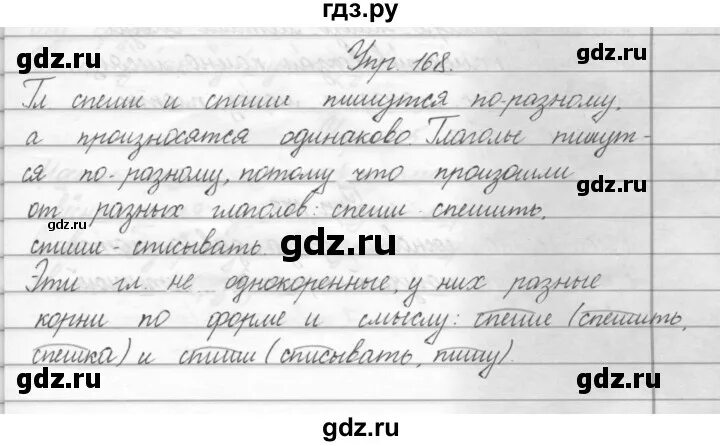 гдз.ру
gdz.ru gdz.ru
Упр. 168.
Гл спеши и спиши пишутся по-разному,
а произносятся одинаково. Глаголы пишут-
ся по-разному, потому что произошли
gdz.ru gdz.ru
от разных глаголов: спеши - спешить,
gdz.ru
спиши - списывать.
gdz.ru
Эти гл. не однокоренные, у них разные
корни по форме и смыслу: спеши (спешить,
спешка) и спиши (списывать, пишу).
gdz.ru gdz.ru
gdz.ru